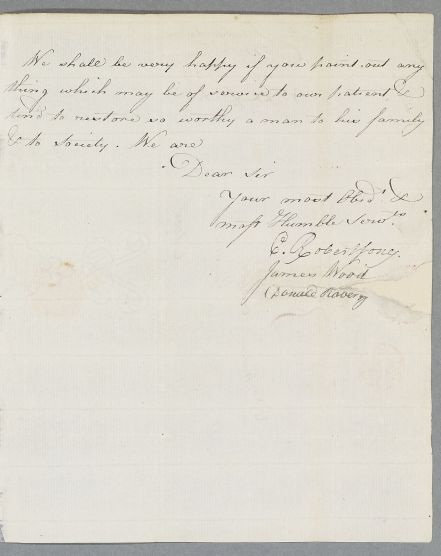 We shall be very happy if you point out any
thing which may be of service to our patient &
tend to restore so worthy a man to his family
& to Society. We are
Dear Sir
Your most Obed.t &
most Humble Serv.ts
James Wood
Donald